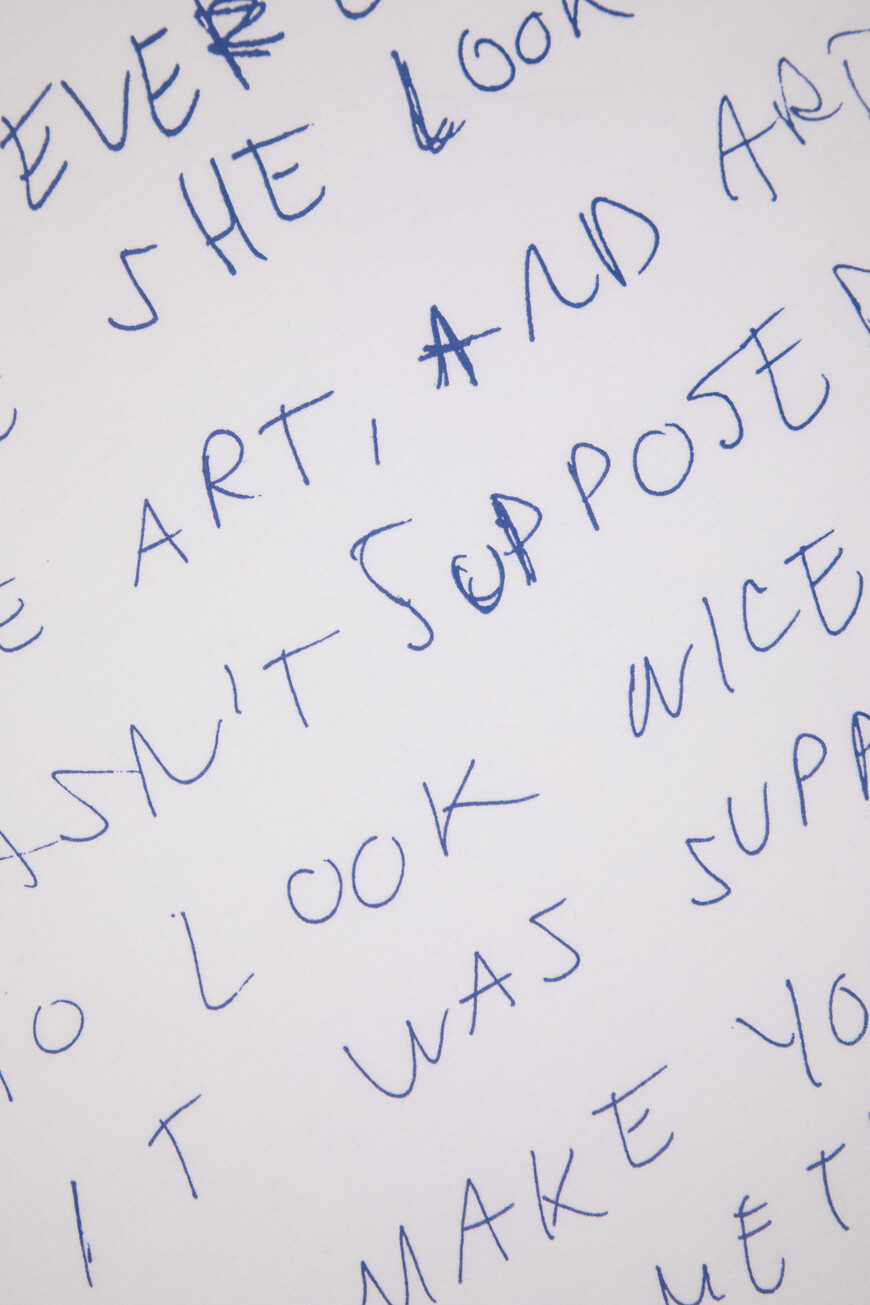 EVER
E SHE LOOK
E ART, AND ART
ASN'T SUPPOSE
O LOOK NICE
IT WAS SUPP
MAKE YO
MET